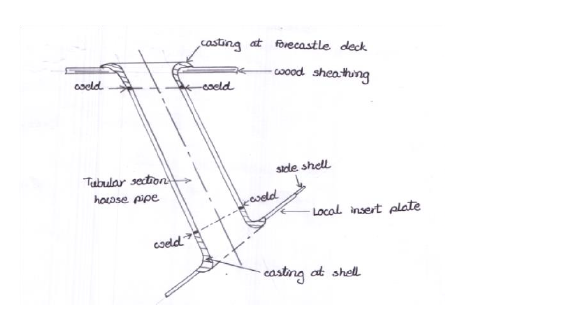 casting at Forecastle deck
wood sheathing
weld
weld
side shell
Tubular section
hawse pipe
weld
Local insert plate
weld
casting at shell